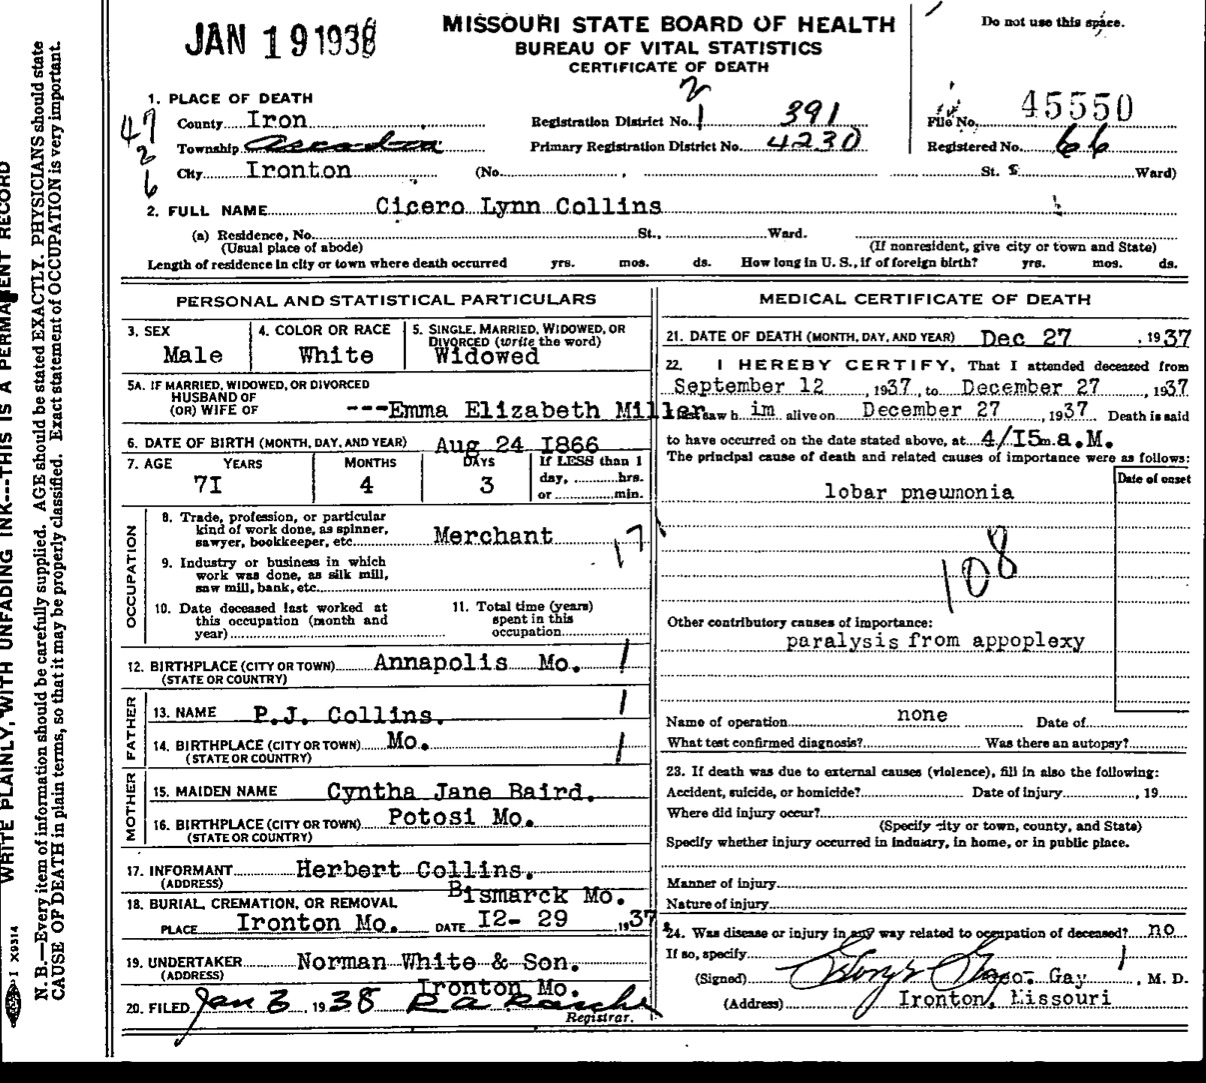 JAN 19 1938
MISSOURI STATE BOARD OF HEALTH
BUREAU OF VITAL STATISTICS
CERTIFICATE OF DEATH
Do not use this space.
1. PLACE OF DEATH
County Iron
Registration District No. 391
File No. 45550
Township
Primary Registration District No. 4230
Registered No. 66
City Ironton
(No. , St. Ward)
2. FULL NAME Cicero Lynn Collins
(a) Residence, No. St., Ward.
(Usual place of abode) (If nonresident, give city or town and State)
Length of residence in city or town where death occurred yrs. mos. ds. How long in U. S., if of foreign birth? yrs. mos. ds.
PERSONAL AND STATISTICAL PARTICULARS
3. SEX
Male
4. COLOR OR RACE
White
5. SINGLE, MARRIED, WIDOWED, OR
DIVORCED (write the word)
Widowed
5A. IF MARRIED, WIDOWED, OR DIVORCED
HUSBAND OF
(OR) WIFE OF ---Emma Elizabeth Miller
6. DATE OF BIRTH (MONTH, DAY, AND YEAR) Aug 24 I866
7. AGE YEARS MONTHS DAYS If LESS than 1
7I 4 3 day, hrs.
or min.
OCCUPATION
8. Trade, profession, or particular
kind of work done, as spinner,
sawyer, bookkeeper, etc. Merchant
17
9. Industry or business in which
work was done, as silk mill,
saw mill, bank, etc.
10. Date deceased last worked at
this occupation (month and
year)
11. Total time (years)
spent in this
occupation
12. BIRTHPLACE (CITY OR TOWN) Annapolis Mo.
(STATE OR COUNTRY)
FATHER
13. NAME P.J. Collins.
14. BIRTHPLACE (CITY OR TOWN) Mo.
(STATE OR COUNTRY)
MOTHER
15. MAIDEN NAME Cyntha Jane Baird.
16. BIRTHPLACE (CITY OR TOWN) Potosi Mo.
(STATE OR COUNTRY)
17. INFORMANT Herbert Collins.
(ADDRESS) Bismarck Mo.
18. BURIAL, CREMATION, OR REMOVAL
PLACE Ironton Mo. DATE I2- 29 , 1937
19. UNDERTAKER Norman White & Son.
(ADDRESS) Ironton Mo.
20. FILED Jan 3, 1938
Registrar.
MEDICAL CERTIFICATE OF DEATH
21. DATE OF DEATH (MONTH, DAY, AND YEAR) Dec 27 , 1937
22. I HEREBY CERTIFY, That I attended deceased from
September 12 , 1937, to December 27 , 1937
saw h im alive on December 27 , 1937. Death is said
to have occurred on the date stated above, at 4/I5 m. a.M.
The principal cause of death and related causes of importance were as follows:
Date of onset
lobar pneumonia
108
Other contributory causes of importance:
paralysis from appoplexy
Name of operation none Date of
What test confirmed diagnosis? Was there an autopsy?
23. If death was due to external causes (violence), fill in also the following:
Accident, suicide, or homicide? Date of injury , 19
Where did injury occur?
(Specify city or town, county, and State)
Specify whether injury occurred in industry, in home, or in public place.
Manner of injury
Nature of injury
24. Was disease or injury in any way related to occupation of deceased? no
If so, specify
(Signed) Gay , M. D.
(Address) Ironton, Missouri
WRITE PLAINLY, WITH UNFADING INK---THIS IS A PERMANENT RECORD
N. B.—Every item of information should be carefully supplied. AGE should be stated EXACTLY. PHYSICIANS should state
CAUSE OF DEATH in plain terms, so that it may be properly classified. Exact statement of OCCUPATION is very important.
1 X9314